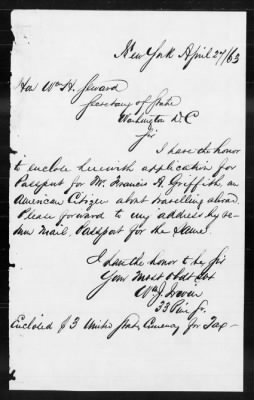 New York April 27/63
Hon Wm H. Seward
Secretary of State
Washington D.C
Sir
I have the honor
to enclose herewith application for
Passport for Mr. Francis A. Griffith, an
American Citizen about travelling abroad.
Please forward to my address by re-
turn mail, Passport for the same.
I have the honor to be, Sir
Your Most Obdt Svt
Wm J.
33 Pine St.
Enclosed $3 United States Currency for Tax -